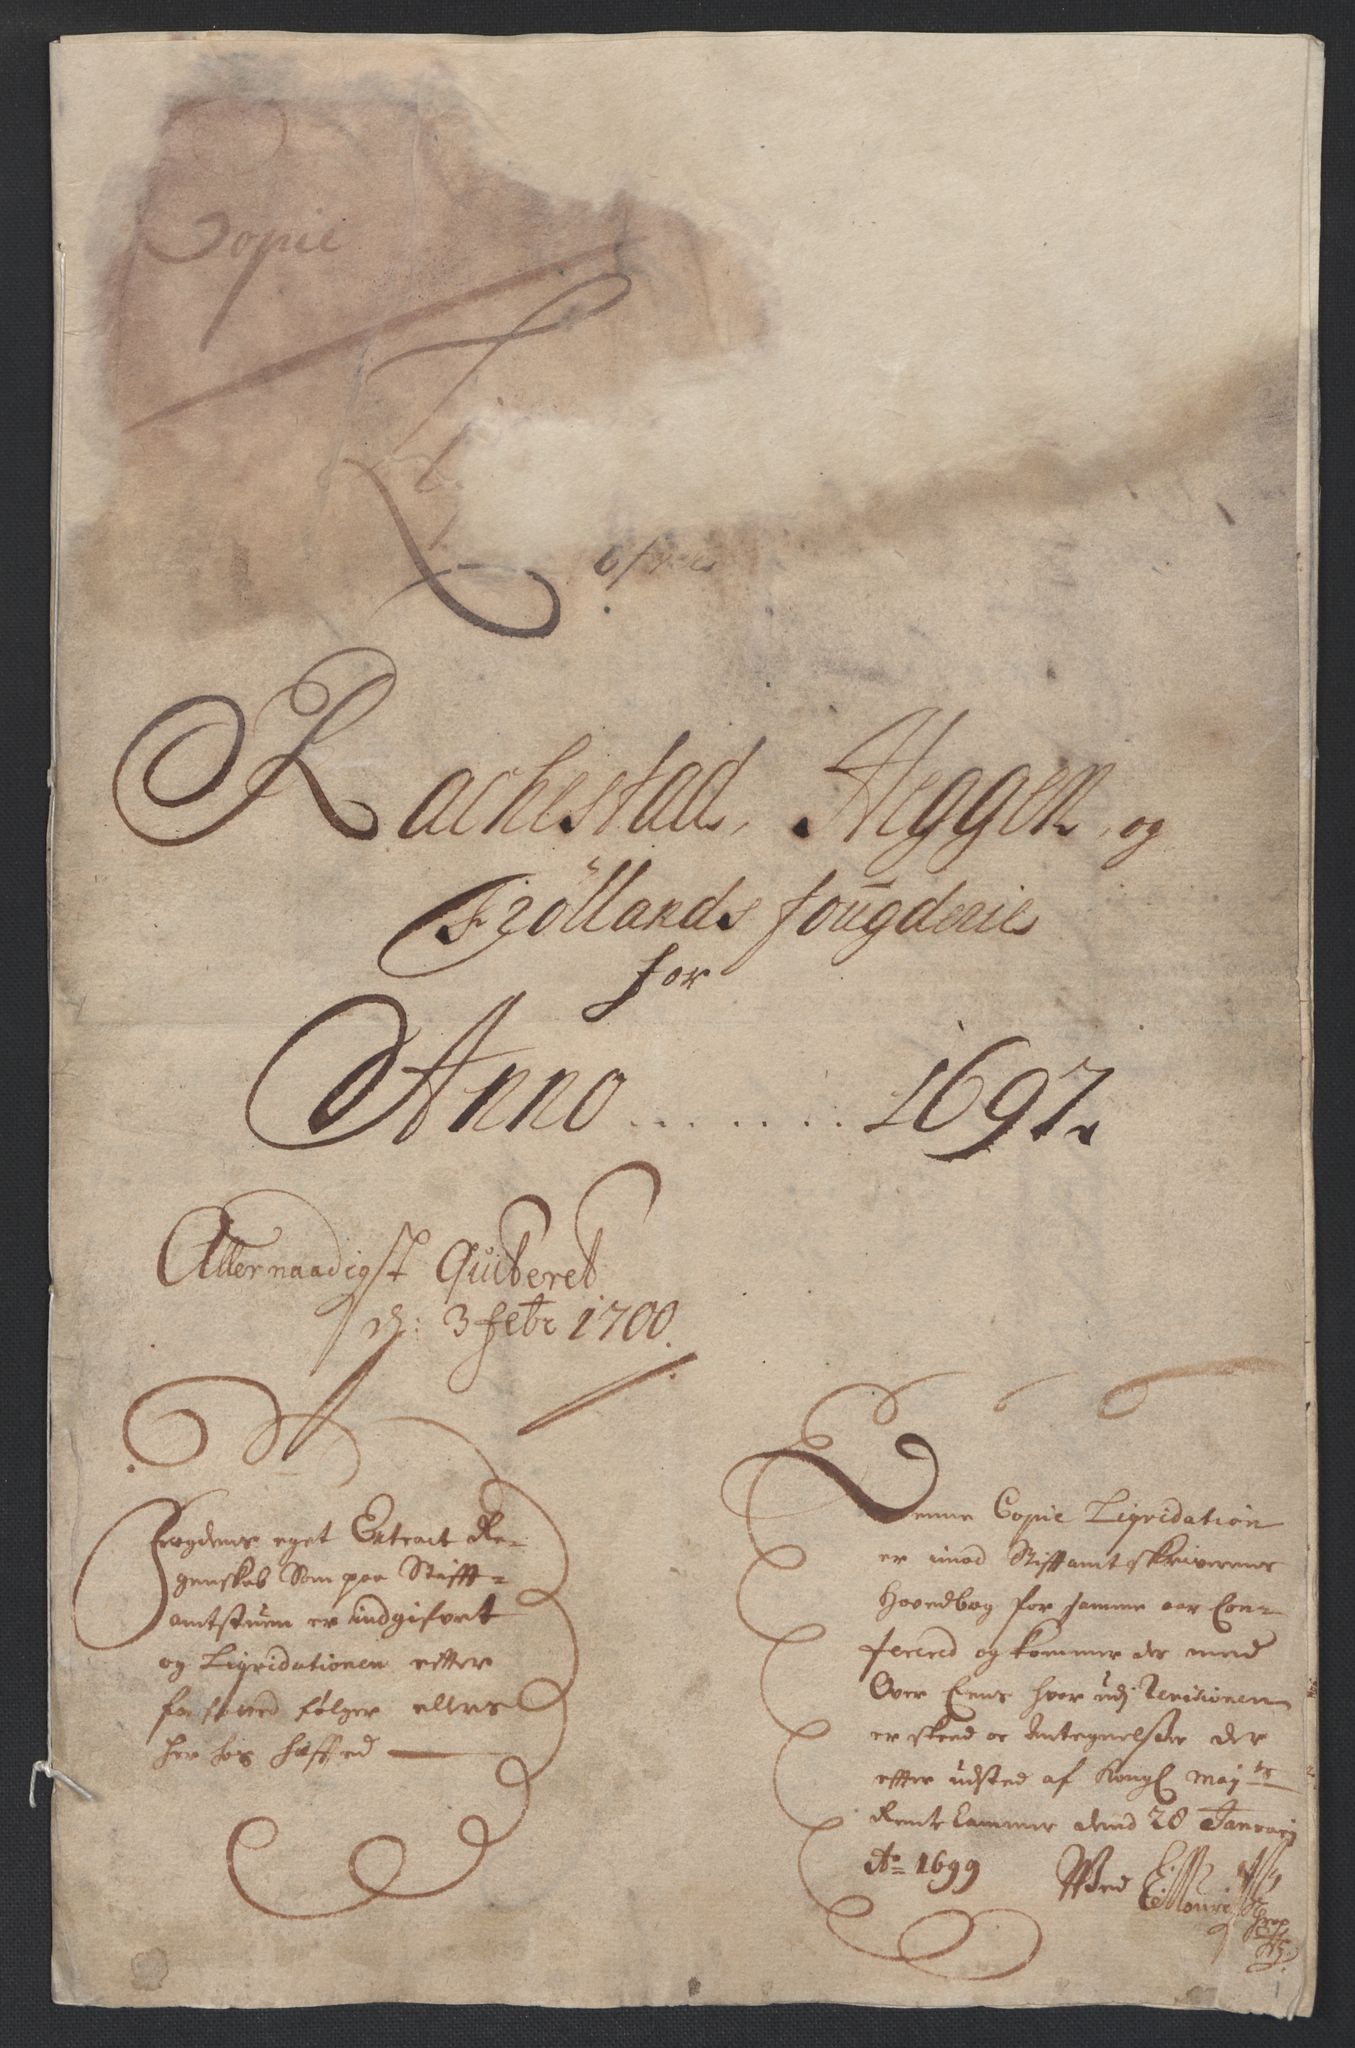 Copie
Rachestad, Heggen, og
Fröllands fougderie
for
Anno ....... 1697.
Allernaadigst Quiteret
d: 3 febr 1700.
Fogdens eget Extract Re-
genskab Som paa Stifft-
amtstuen er indgifvet
og Liqvidationen efter
forfatted følger ellers
her hos hæfted
Denne Copie Liqvidation
er imod Stiftamtskriverens
Hovedbog for samme aar Con-
fererid og kommer der med
Over Eens hvor udj Revisionen
er skeed oc Antegnelser der
efter udsted af Kongl May ts
Rente Cammer dend 28 Januarij
Ao 1699